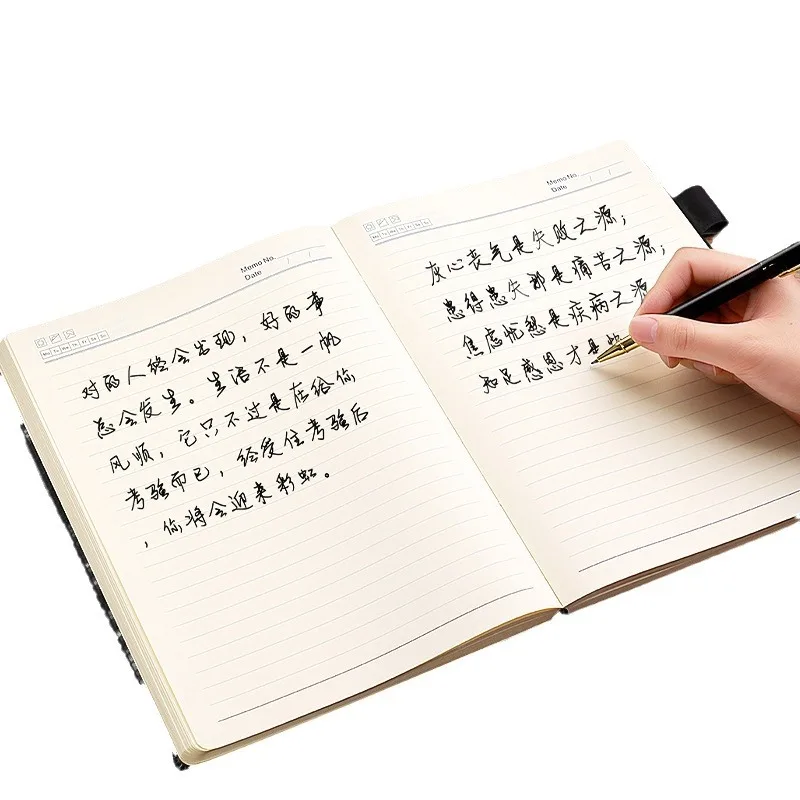 Memo No.
Date / /
Mo Tu We Th Fr Sa Su
对的人终会出现，好的事
总会发生。生活不是一帆
风顺，它只不过是在给你
考验而已，经受住考验后
，你将会迎来彩虹。
Memo No.
Date / /
Mo Tu We Th Fr Sa Su
灰心丧气是失败之源；
患得患失却是痛苦之源；
焦虑忧愁是疾病之源
知足感恩才是